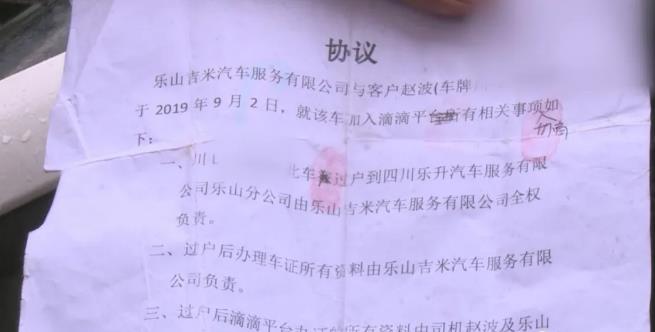 协议
乐山吉米汽车服务有限公司与客户赵波(车牌
于2019年9月2日,就该车加入滴滴平台所有相关事项如
下:
一、川L 此车过户到四川乐升汽车服务有限
公司乐山分公司由乐山吉米汽车服务有限公司全权
负责。
二、过户后办理车证所有资料由乐山吉米汽车服务有限
公司负责。
三、过户后滴滴平台办证所有资料由司机赵波及乐山